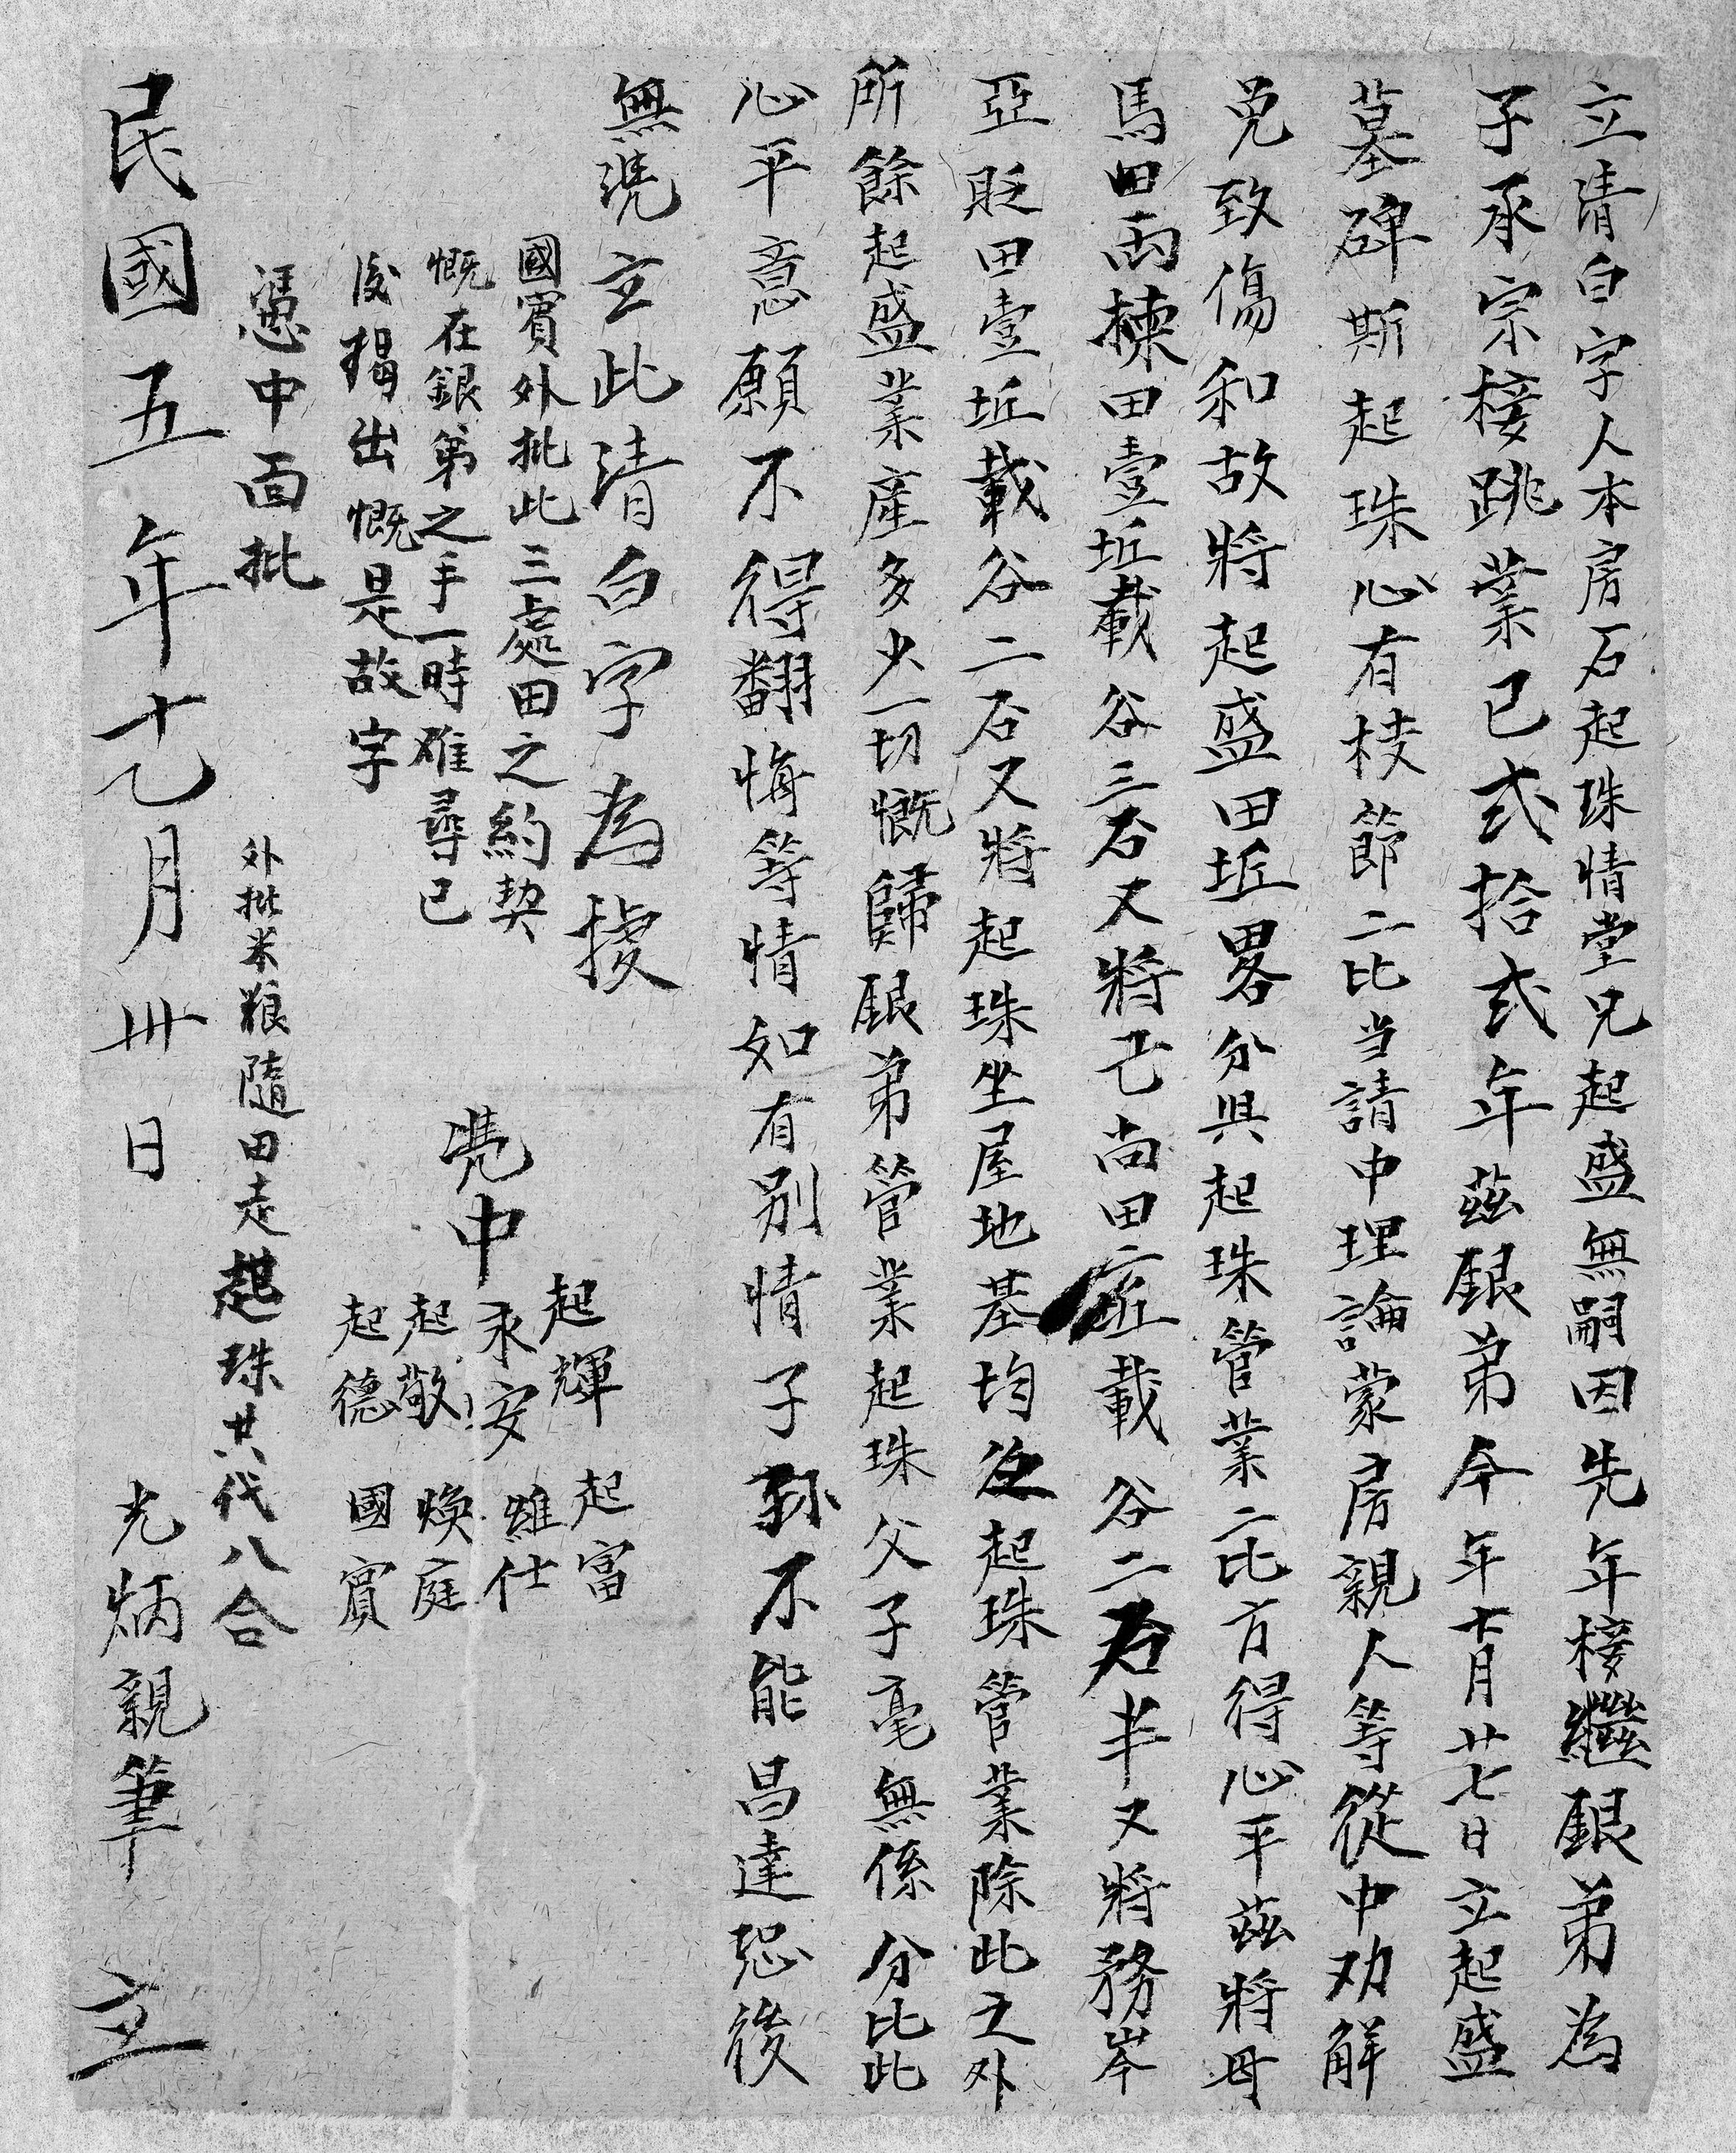 立清白字人本房一石起珠情堂兄起盛無嗣因先年接繼銀弟為
子承宗接跳業已弍拾弍年茲銀弟今年十月廿七日立起盛
墓碑斯起珠心有枝節二比当請中理論蒙房親人等從中劝解
免致傷和故將起盛田坵畧分與起珠管業二比方得心平茲將毋
馬田両楝田壹坵載谷三石又將已尚田二坵載谷二石半又將務岑
亞貶田壹坵載谷二石又將起珠坐屋地基均是起珠管業除此之外
所餘起盛業產多少一切慨歸銀弟管業起珠父子毫無係分比此
心平意願不得翻悔等情如有别情子孫不能昌達恐後
無凴立此清白字為據
國賓外批此三處田之約契
慨在銀弟之手一時难尋已
後揭出慨是故字
憑中面批
外批米粮隨田走起珠共代八合
凴中
起輝 起富
永安 維仕
起敬 煥庭
起德 國賓
民國五年十乙月卅日 光炳親筆 立